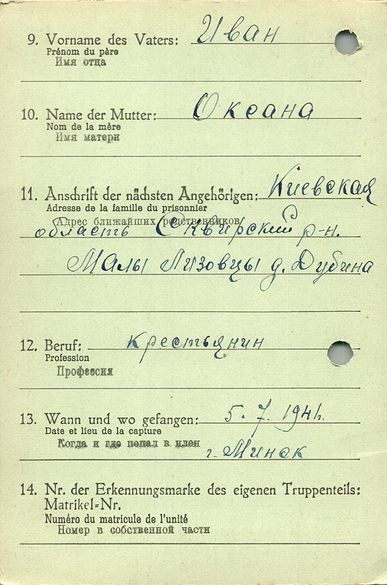 9. Vorname des Vaters: Иван
Prénom du père
Имя отца
10. Name der Mutter: Оксана
Nom de la mère
Имя матери
11. Anschrift der nächsten Angehörigen: Киевская
Adresse de la famille du prisonnier
Адрес ближайших родственников
область Сквирский р-н.
Малы Лизовцы д. Дубина
12. Beruf: крестьянин
Profession
Профессия
13. Wann und wo gefangen: 5.7.1941.
Date et lieu de la capture
Когда и где попал в плен
г. Минск
14. Nr. der Erkennungsmarke des eigenen Truppenteils:
Matrikel-Nr.
Numéro du matricule de l'unité
Номер в собственной части